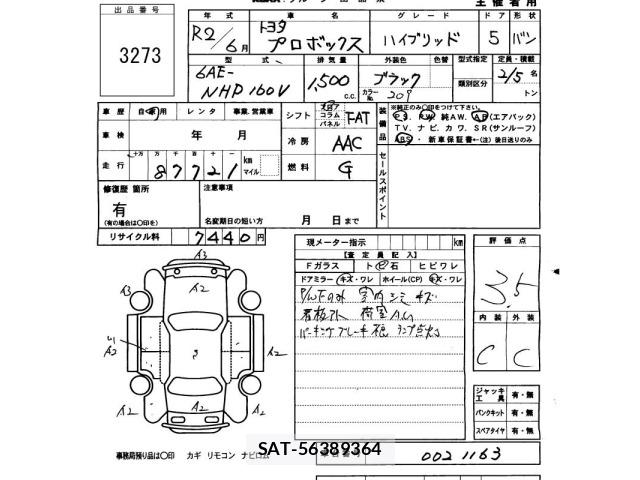 出品番号
3273
年式 車名 グレード ドア 形状
R2/6月 トヨタ プロボックス ハイブリッド 5 バン
型式 排気量 外装色 色替 型式指定 定員・積載
6AE-
NHP160V 1,500 c.c. ブラック
カラーNo. 209 類別区分 2/5名
トン
車歴 自家用 レンタ 事業、営業車
シフト フロア コラム パネル FAT
車検 年 月
冷房 AAC
走行 十万 万 千 百 十 一 km マイル
87721
燃料 G
装備品 ※純正のみ〇印をつけて下さい。
P.S. P.W. 純AW. AB(エアバック)
TV. ナビ. カワ. SR(サンルーフ)
ABS・新車保証書←(注)後日送りのみ
セールスポイント
修復歴 箇所
有
(有の場合は〇印を)
注意事項
名変期日の短い方 月 日まで
リサイクル料 7440円
現メーター指示 km
【査定員記入】
Fガラス トビ石 ヒビワレ
ドアミラー(キズ・ワレ ホイール(CP) キズ・ワレ
P/WFのみ 室内シミ キズ
看板アト 荷室AG
パーキングブレーキ根 ランプ点灯
評価点
3.5
内装 外装
C C
ジャッキ 工具 有・無
パンクキット 有・無
スペアタイヤ 有・無
A3
A2
A3 A3
A2
A2
A2
A2
A2 A2
事務局預り品は〇印 カギ リモコン ナビロム
SAT-56389364
0021163